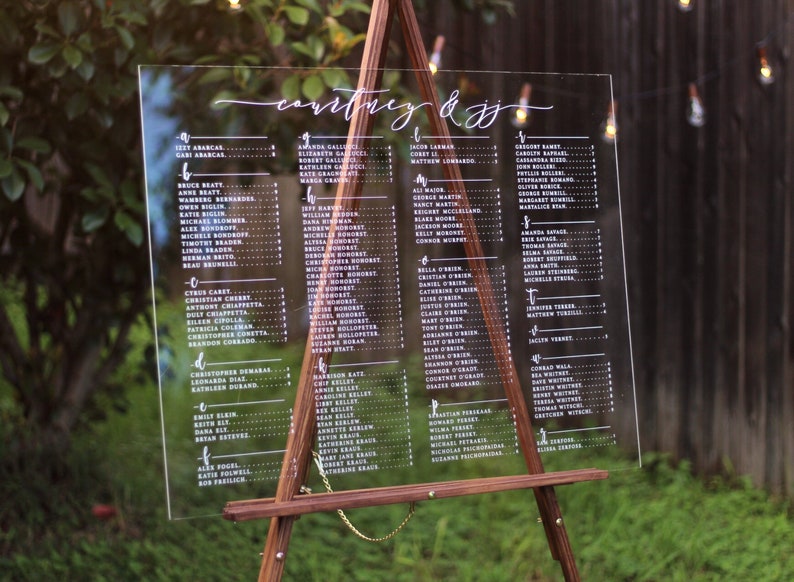 courtney & jj
a
IZZY ABARCAS
GABI ABARCAS
b
BRUCE BEATY
ANNE BEATY
WAMBERG BERNARDES
OWEN BIGLIN
KATIE BIGLIN
MICHAEL BLOMMER
ALEX BONDROFF
MICHELE BONDROFF
TIMOTHY BRADEN
LINDA BRADEN
HERMAN BRITO
BEAU BRUNELL
c
CYRUS CAREY
CHRISTIAN CHERRY
ANTHONY CHIAPPETTA
DULY CHIAPPETTA
EILEEN CIPOLLA
PATRICIA COLEMAN
CHRISTOPHER CONETTA
BRANDON CORRADO
d
CHRISTOPHER DEMARAS
LEONARDA DIAZ
KATHLEEN DURAND
e
EMILY ELKIN
KEITH ELY
DANA ELY
BRYAN ESTEVEZ
f
ALEX FOGEL
KATIE FOLWELL
ROB FREILICH
g
AMANDA GALLUCCI
ELIZABETH GALLUCCI
ROBERT GALLUCCI
KATHLEEN GALLUCCI
KATE GRAGNOLATI
MARGA GRAVES
h
JEFF HARVEY
WILLIAM HEDDEN
DANA HINDMAN
ANDREW HOHORST
MICHELLE HOHORST
ALYSSA HOHORST
BRUCE HOHORST
DEBORAH HOHORST
CHRISTOPHER HOHORST
MICHA HOHORST
CHARLOTTE HOHORST
HENRY HOHORST
JOAN HOHORST
JIM HOHORST
KATE HOHORST
LOUISE HOHORST
RACHEL HOHORST
WILLIAM HOHORST
STEVEN HOLLOPETER
LAUREN HOLLOPETER
SUZANNE HORAN
BRIAN HYATT
k
HARRISON KATZ
CHIP KELLEY
ANNIE KELLEY
CAROLINE KELLEY
LIBBY KELLEY
BEX KELLEY
RYAN KERLEW
ANNETTE KERLEW
KEVIN KRAUS
KATHERINE KRAUS
KEVIN KRAUS
MARY JANE KRAUS
ROBERT KRAUS
KATHERINE KRAUS
l
JACOB LARMAN
COREY LI
MATTHEW LOMBARDO
m
ALI MAJOR
GEORGE MARTIN
NANCY MARTIN
KEIGHRY MCLELLAND
BLAKE MOORE
JACKSON MOORE
KELLY MORONEY
CONNOR MURPHY
o
BELLA O'BRIEN
CRISTIAN O'BRIEN
DANIEL O'BRIEN
CATHERINE O'BRIEN
ELISE O'BRIEN
JUSTIN O'BRIEN
CLAIRE O'BRIEN
MARY O'BRIEN
TONY O'BRIEN
ADRIANE O'BRIEN
RILEY O'BRIEN
SEAN O'BRIEN
ALYSSA O'BRIEN
SHANNON O'BRIEN
COURTNEY O'GRADY
OSAZEE OMOKARO
p
BASTIAN PERSKAAE
HOWARD PERSKY
WILMA PERSKY
ROBERT PERSKY
MICHAEL PETRAKIS
NICHOLAS PSICHOPAIDAS
SUZANNE PSICHOPAIDAS
r
GREGORY RAMEY
CAROLYN RAPHAEL
CASSANDRA RIZZO
JOHN ROLLERI
PHYLLIS ROLLERI
STEPHANIE ROMANO
OLIVER RORICK
GEORGE RUMRILL
MARGARET RUMRILL
MARYALICE RYAN
s
AMANDA SAVAGE
ERIK SAVAGE
THOMAS SAVAGE
SELMA SAVAGE
ROBERT SHUFFIELD
ANNA SMITH
LAUREN STEINBERG
MICHELE STRUSA
t
JENNIFER TERKER
MATTHEW TURZILLI
v
JACLYN VERNET
w
CONRAD WALA
BEA WHITNEY
DAVE WHITNEY
KRISTIN WHITNEY
HENRY WHITNEY
TERESA WHITNEY
THOMAS WITSCHI
GRETCHEN WITSCHI
z
SAM ZERFOSS
ELISSA ZERFOSS